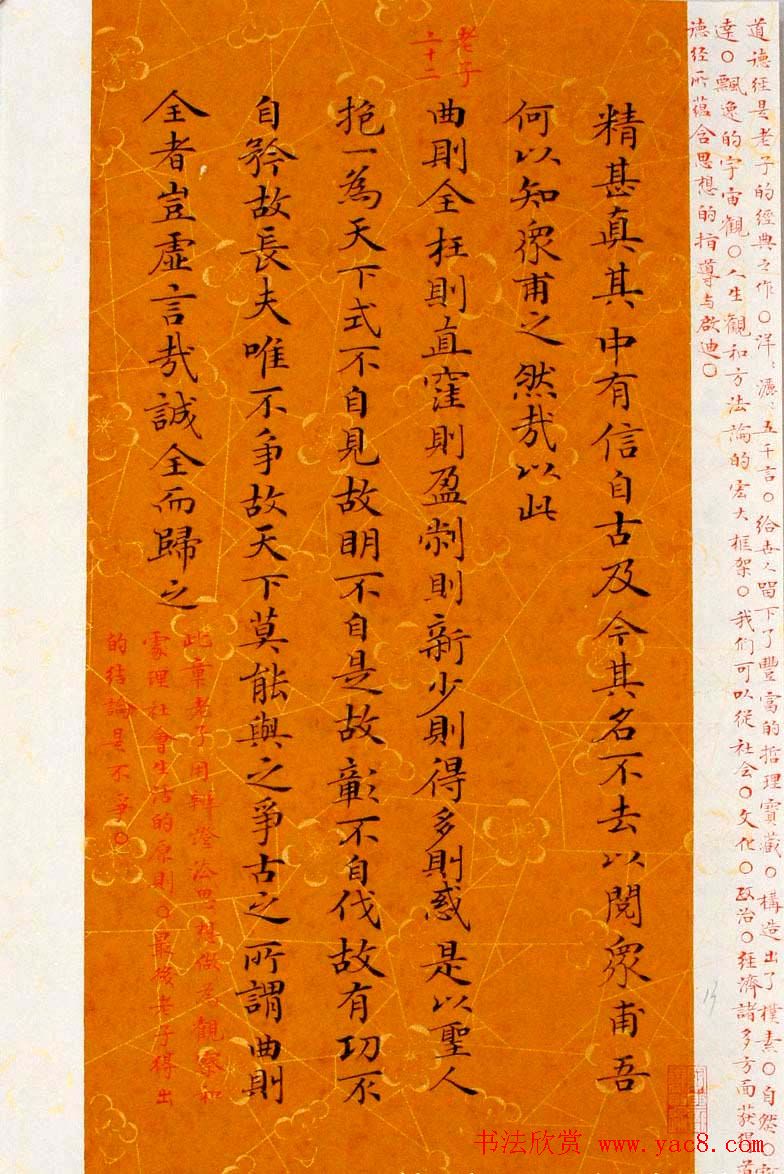 道德经是老子的經典之作〇洋洋灑灑五千言〇给世人留下了豐富的哲理寶藏〇構造出了樸素〇自然〇
達〇飄逸的宇宙觀〇人生觀和方法論的宏大框架〇我们可以從社会〇文化〇政治〇經濟諸多方面获得道
德经所蕴含思想的指導与啟迪〇
精甚真其中有信自古及今其名不去以閱眾甫吾
何以知眾甫之然哉以此
老子
二十二
曲則全枉則直窪則盈弊則新少則得多則惑是以聖人
抱一為天下式不自見故明不自是故彰不自伐故有功不
自矜故長夫唯不爭故天下莫能與之爭古之所謂曲則
全者豈虛言哉誠全而歸之
此章老子用辩證法思想做为觀察和
處理社會生活的原則〇最後老子得出
的结論是不爭〇
书法欣赏 www.yac8.com